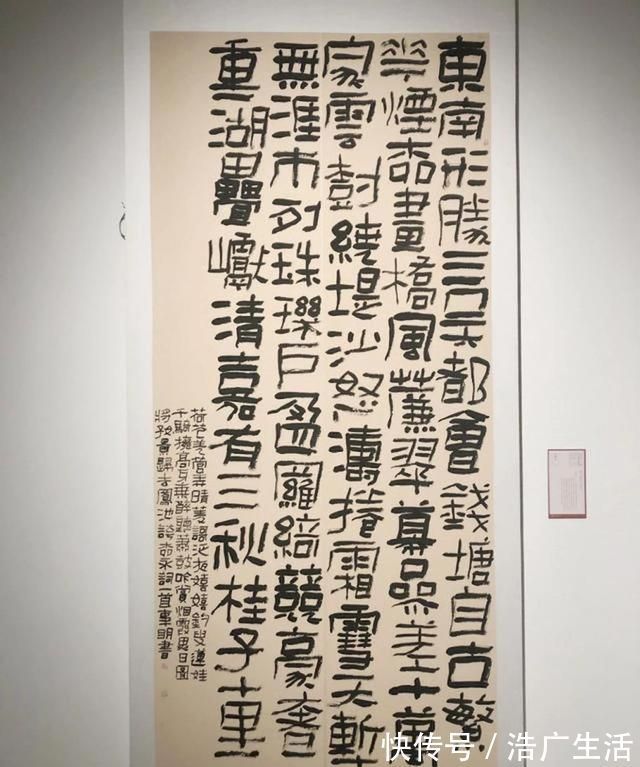 東南形勝三吴都會錢塘自古繁
華煙柳畫橋風簾翠幕參差十萬
家雲樹繞堤沙怒濤捲霜雪天塹
無涯市列珠璣戶盈羅綺競豪奢
重湖疊巘清嘉有三秋桂子十里
荷花羌管弄晴菱謳泛夜嬉嬉釣叟蓮娃
千騎擁高牙乘醉聽蕭鼓吟賞烟霞異日圖
將好景歸去鳳池誇柳永詞一首明書
快传号／浩广生活